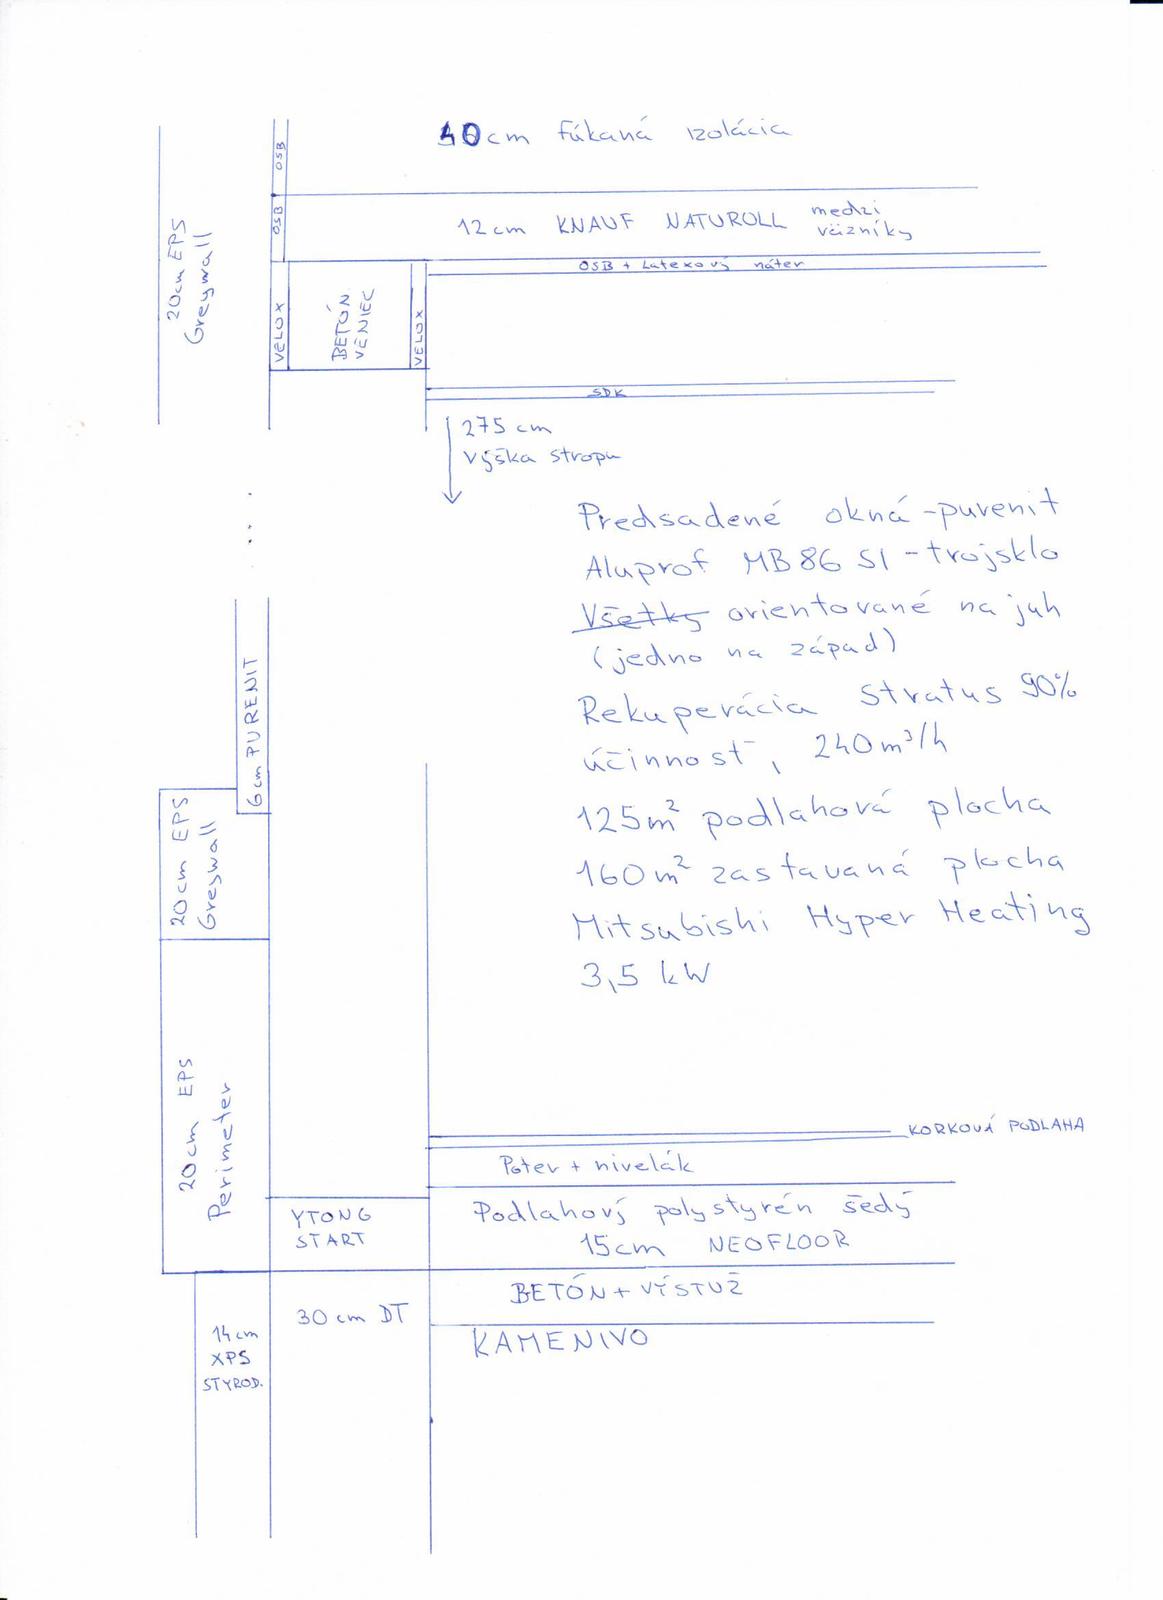 40cm fúkaná izolácia
OSB
OSB
12cm KNAUF NATUROLL medzi
väzníky
OSB + Latexový náter
20cm EPS
Greywall
VELOX
BETÓN
VENIEC
VELOX
SDK
275 cm
výška stropu
Predsadené okná - purenit
Aluprof MB86 SI - trojsklo
Všetky orientované na juh
(jedno na západ)
Rekuperácia Stratus 90%
účinnosť, 240m³/h
6cm PURENIT
125m² podlahová plocha
20cm EPS
Greywall
160m² zastavaná plocha
Mitsubishi Hyper Heating
3,5 kW
20cm EPS
Perimeter
KORKOVÁ PODLAHA
Poter + nivelák
YTONG
START
Podlahový polystyrén šedý
15cm NEOFLOOR
BETÓN + VÝSTUŽ
30 cm DT
KAMENIVO
14cm
XPS
STYROD.